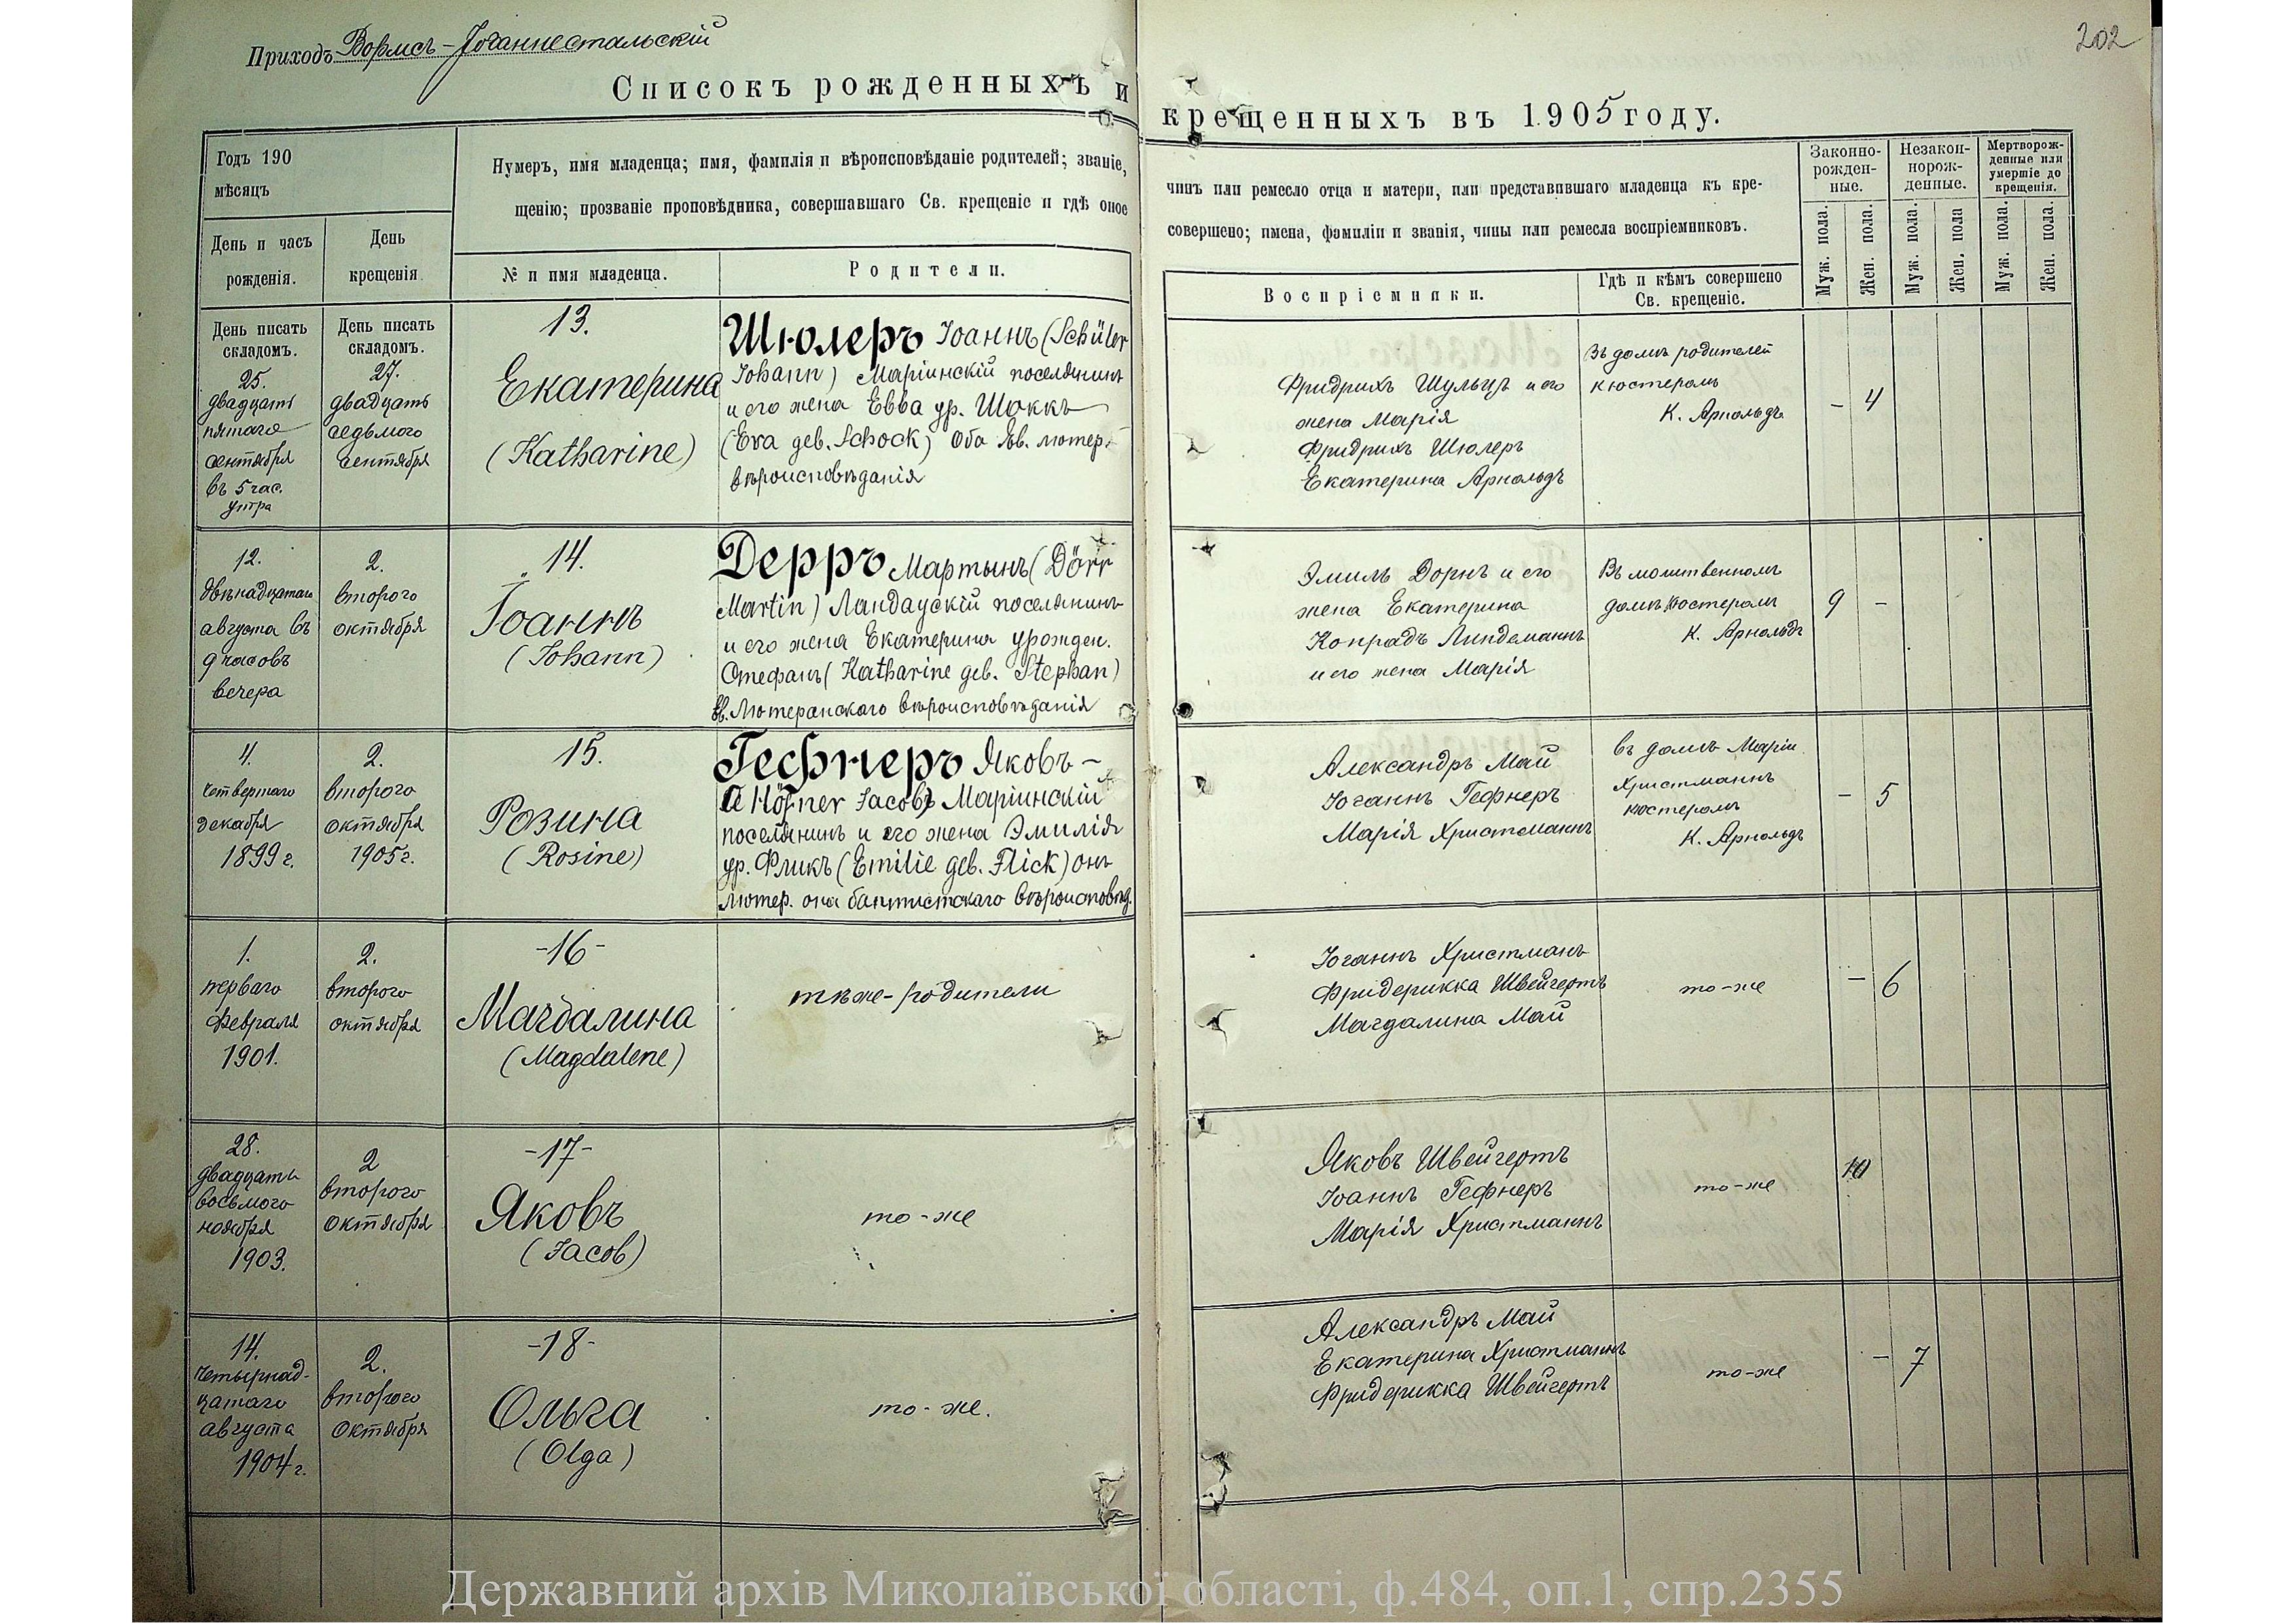 Приходъ Вормсъ-Іоганнестальскій
202
Списокъ рожденныхъ и крещенныхъ въ 1905 году.
Годъ 190
мѣсяцъ
День и часъ
рожденія.
День
крещенія
Нумеръ, имя младенца; имя, фамилія и вѣроисповѣданіе родителей; званіе,
щенію; прозваніе проповѣдника, совершавшаго Св. крещеніе и гдѣ оное
№ и имя младенца.
Родители.
чинъ или ремесло отца и матери, или представившаго младенца къ кре-
совершено; имена, фамиліи и званія, чины или ремесла воспріемниковъ.
Воспріемники.
Гдѣ и кѣмъ совершено
Св. крещеніе.
Законно-
рожден-
ные.
Незакон-
норож-
денные.
Мертворож-
денные или
умершіе до
крещенія.
Муж. пола.
Жен. пола.
Муж. пола.
Жен. пола
Муж. пола.
Жен. пола.
День писать
складомъ.
25.
двадцать
пятаго
сентября
въ 5 час.
утра
День писать
складомъ.
27.
двадцать
седьмого
сентября
13.
Екатерина
(Katharine)
Шюлеръ Іоаннъ (Schüler
Johann) Маріинскій поселянинъ
и его жена Евва ур. Шоккъ
(Eva geb. Schock) Оба Ев. лютер.
вѣроисповѣданія
Фридрихъ Шульцъ и его
жена Марія
Фридрихъ Шюлеръ
Екатерина Арнольдъ
Въ домѣ родителей
кюстеромъ
К. Арнольдъ
- 4
12.
двѣнадцатаго
августа въ
9 часовъ
вечера
2.
второго
октября
14.
Іоаннъ
(Johann)
Дерръ Мартынъ (Dörr
Martin) Ландаускій поселянинъ
и его жена Екатерина урожден.
Стефанъ (Katharine geb. Stephan)
Ев. Лютеранскаго вѣроисповѣданія
Эмиль Дорнъ и его
жена Екатерина
Конрадъ Линдеманнъ
и его жена Марія
Въ молитвенномъ
домѣ кюстеромъ
К. Арнольдъ
9 -
4.
четвертаго
декабря
1899 г.
2.
второго
октября
1905 г.
15.
Розина
(Rosine)
Гефнеръ Яковъ -
(Höfner Jacob) Маріинскій
поселянинъ и его жена Эмилія
ур. Фликъ (Emilie geb. Flick) онъ
лютер. она баптистскаго вѣроисповѣд.
Александръ Май
Іоганнъ Гефнеръ
Марія Христманнъ
въ домѣ Маріи
Христманнъ
кюстеромъ
К. Арнольдъ
- 5
1.
перваго
февраля
1901.
2.
второго
октября
-16-
Магдалина
(Magdalene)
тѣже-родители
Іоганнъ Христманъ
Фридерикка Швейгертъ
Магдалина Май
то-же
- 6
28.
двадцать
восьмого
ноября
1903.
2
второго
октября
-17-
Яковъ
(Jacob)
то-же
Яковъ Швейгертъ
Іоаннъ Гефнеръ
Марія Христманнъ
то-же
10
14.
четырнад-
цатаго
августа
1904 г.
2.
второго
октября
-18-
Ольга
(Olga)
то-же.
Александръ Май
Екатерина Христманнъ
Фридерикка Швейгертъ
то-же
- 7
Державний архів Миколаївської області, ф.484, оп.1, спр.2355